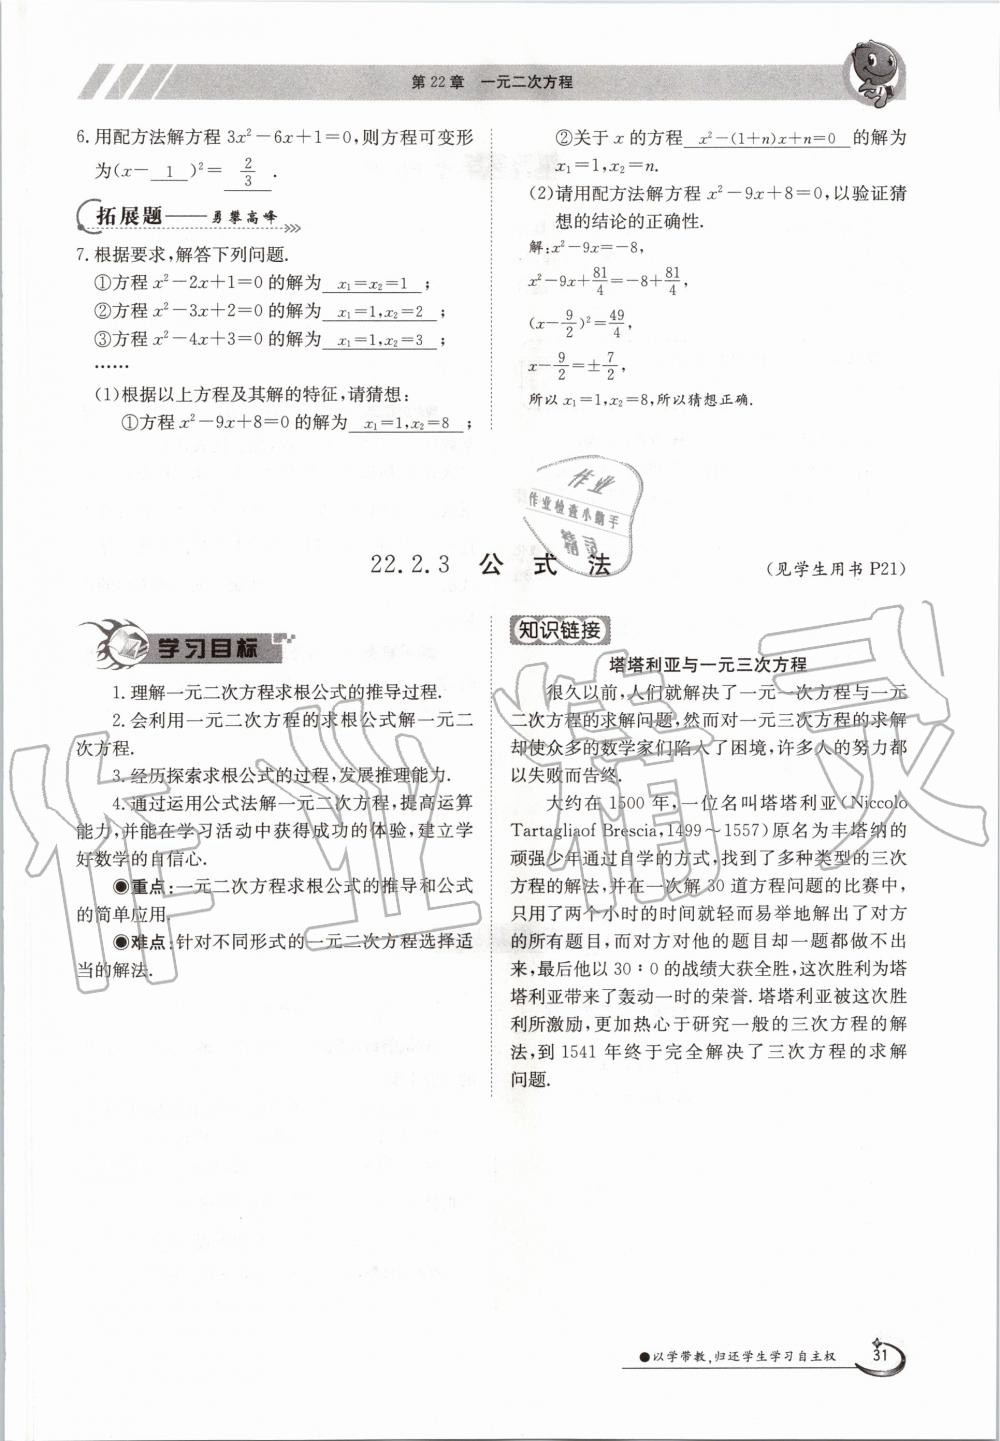 第22章 一元二次方程
6.用配方法解方程 3x²-6x+1=0,则方程可变形
为(x- 1 )²= 2/3 .
拓展题——勇攀高峰
7.根据要求,解答下列问题.
①方程 x²-2x+1=0 的解为 x₁=x₂=1 ;
②方程 x²-3x+2=0 的解为 x₁=1,x₂=2 ;
③方程 x²-4x+3=0 的解为 x₁=1,x₂=3 ;
……
(1)根据以上方程及其解的特征,请猜想:
①方程 x²-9x+8=0 的解为 x₁=1,x₂=8 ;
②关于 x 的方程 x²-(1+n)x+n=0 的解为
x₁=1,x₂=n.
(2)请用配方法解方程 x²-9x+8=0,以验证猜
想的结论的正确性.
解:x²-9x=-8,
x²-9x+81/4=-8+81/4,
(x-9/2)²=49/4,
x-9/2=±7/2,
所以 x₁=1,x₂=8,所以猜想正确.
作业
作业检查小助手
精灵
22.2.3 公式法
(见学生用书 P21)
学习目标
1.理解一元二次方程求根公式的推导过程.
2.会利用一元二次方程的求根公式解一元二
次方程.
3.经历探索求根公式的过程,发展推理能力.
4.通过运用公式法解一元二次方程,提高运算
能力,并能在学习活动中获得成功的体验,建立学
好数学的自信心.
●重点:一元二次方程求根公式的推导和公式
的简单应用.
●难点:针对不同形式的一元二次方程选择适
当的解法.
知识链接
塔塔利亚与一元三次方程
很久以前,人们就解决了一元一次方程与一元
二次方程的求解问题,然而对一元三次方程的求解
却使众多的数学家们陷入了困境,许多人的努力都
以失败而告终.
大约在 1500 年,一位名叫塔塔利亚(Niccolo
Tartagliaof Brescia,1499～1557)原名为丰塔纳的
顽强少年通过自学的方式,找到了多种类型的三次
方程的解法,并在一次解 30 道方程问题的比赛中,
只用了两个小时的时间就轻而易举地解出了对方
的所有题目,而对方对他的题目却一题都做不出
来,最后他以 30∶0 的战绩大获全胜,这次胜利为塔
塔利亚带来了轰动一时的荣誉.塔塔利亚被这次胜
利所激励,更加热心于研究一般的三次方程的解
法,到 1541 年终于完全解决了三次方程的求解
问题.
作业精灵
●以学带教,归还学生学习自主权
31